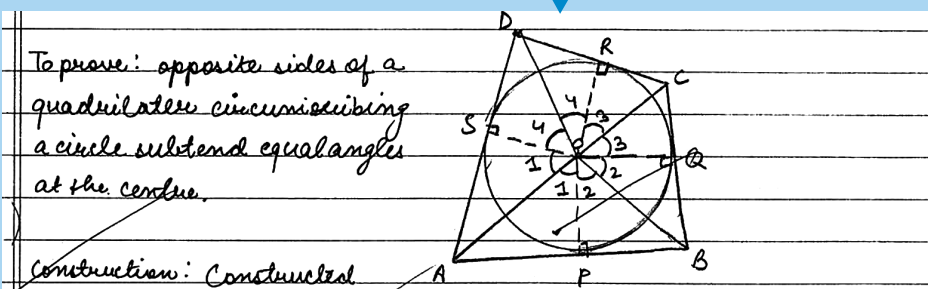 To prove: opposite sides of a
quadrilater circumiscribing
a circle subtend equal angles
at the centre.
Construction: Constructed
D
R
C
S
4
3
4
3
O
1
2
Q
1
2
A
P
B